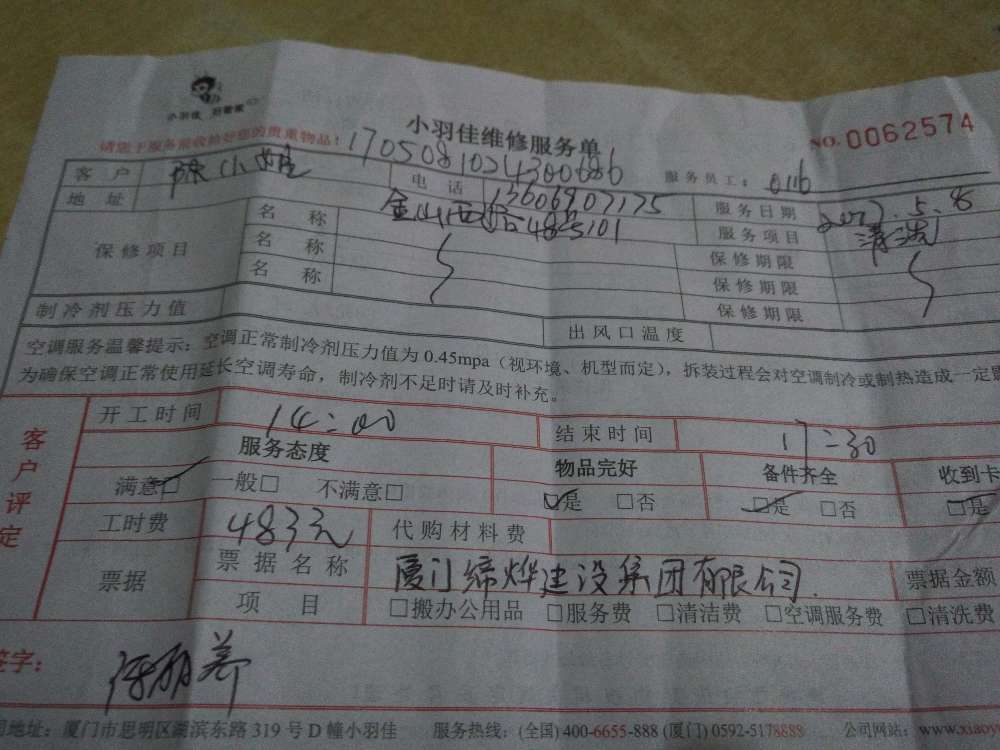 小羽佳 好管家
小羽佳维修服务单
NO.0062574
请您于服务前收拾好您的贵重物品!
1705081024300686
服务员工: 0116
客户 陈小
电话 13606907175
服务日期 2017.5.8
地址 金山西 48号101
服务项目 清洗
保修项目
名称
保修期限
名称
保修期限
名称
保修期限
制冷剂压力值
出风口温度
空调服务温馨提示: 空调正常制冷剂压力值为0.45mpa (视环境、机型而定), 拆装过程会对空调制冷或制热造成一定
为确保空调正常使用延长空调寿命, 制冷剂不足时请及时补充。
客户评定
开工时间 14:00
结束时间 17:30
服务态度
物品完好
备件齐全
收到卡
满意□ 一般□ 不满意□
□是 □否
□是 □否
□是
工时费 483元
代购材料费
票据
票据名称 厦门缔烨建设集团有限公司.
票据金额
项目 □搬办公用品 □服务费 □清洁费 □空调服务费 □清洗费
签字:
地址: 厦门市思明区湖滨东路319号D幢小羽佳 服务热线: (全国) 400-6655-888 (厦门) 0592-5178888 公司网站: www.xiaoy